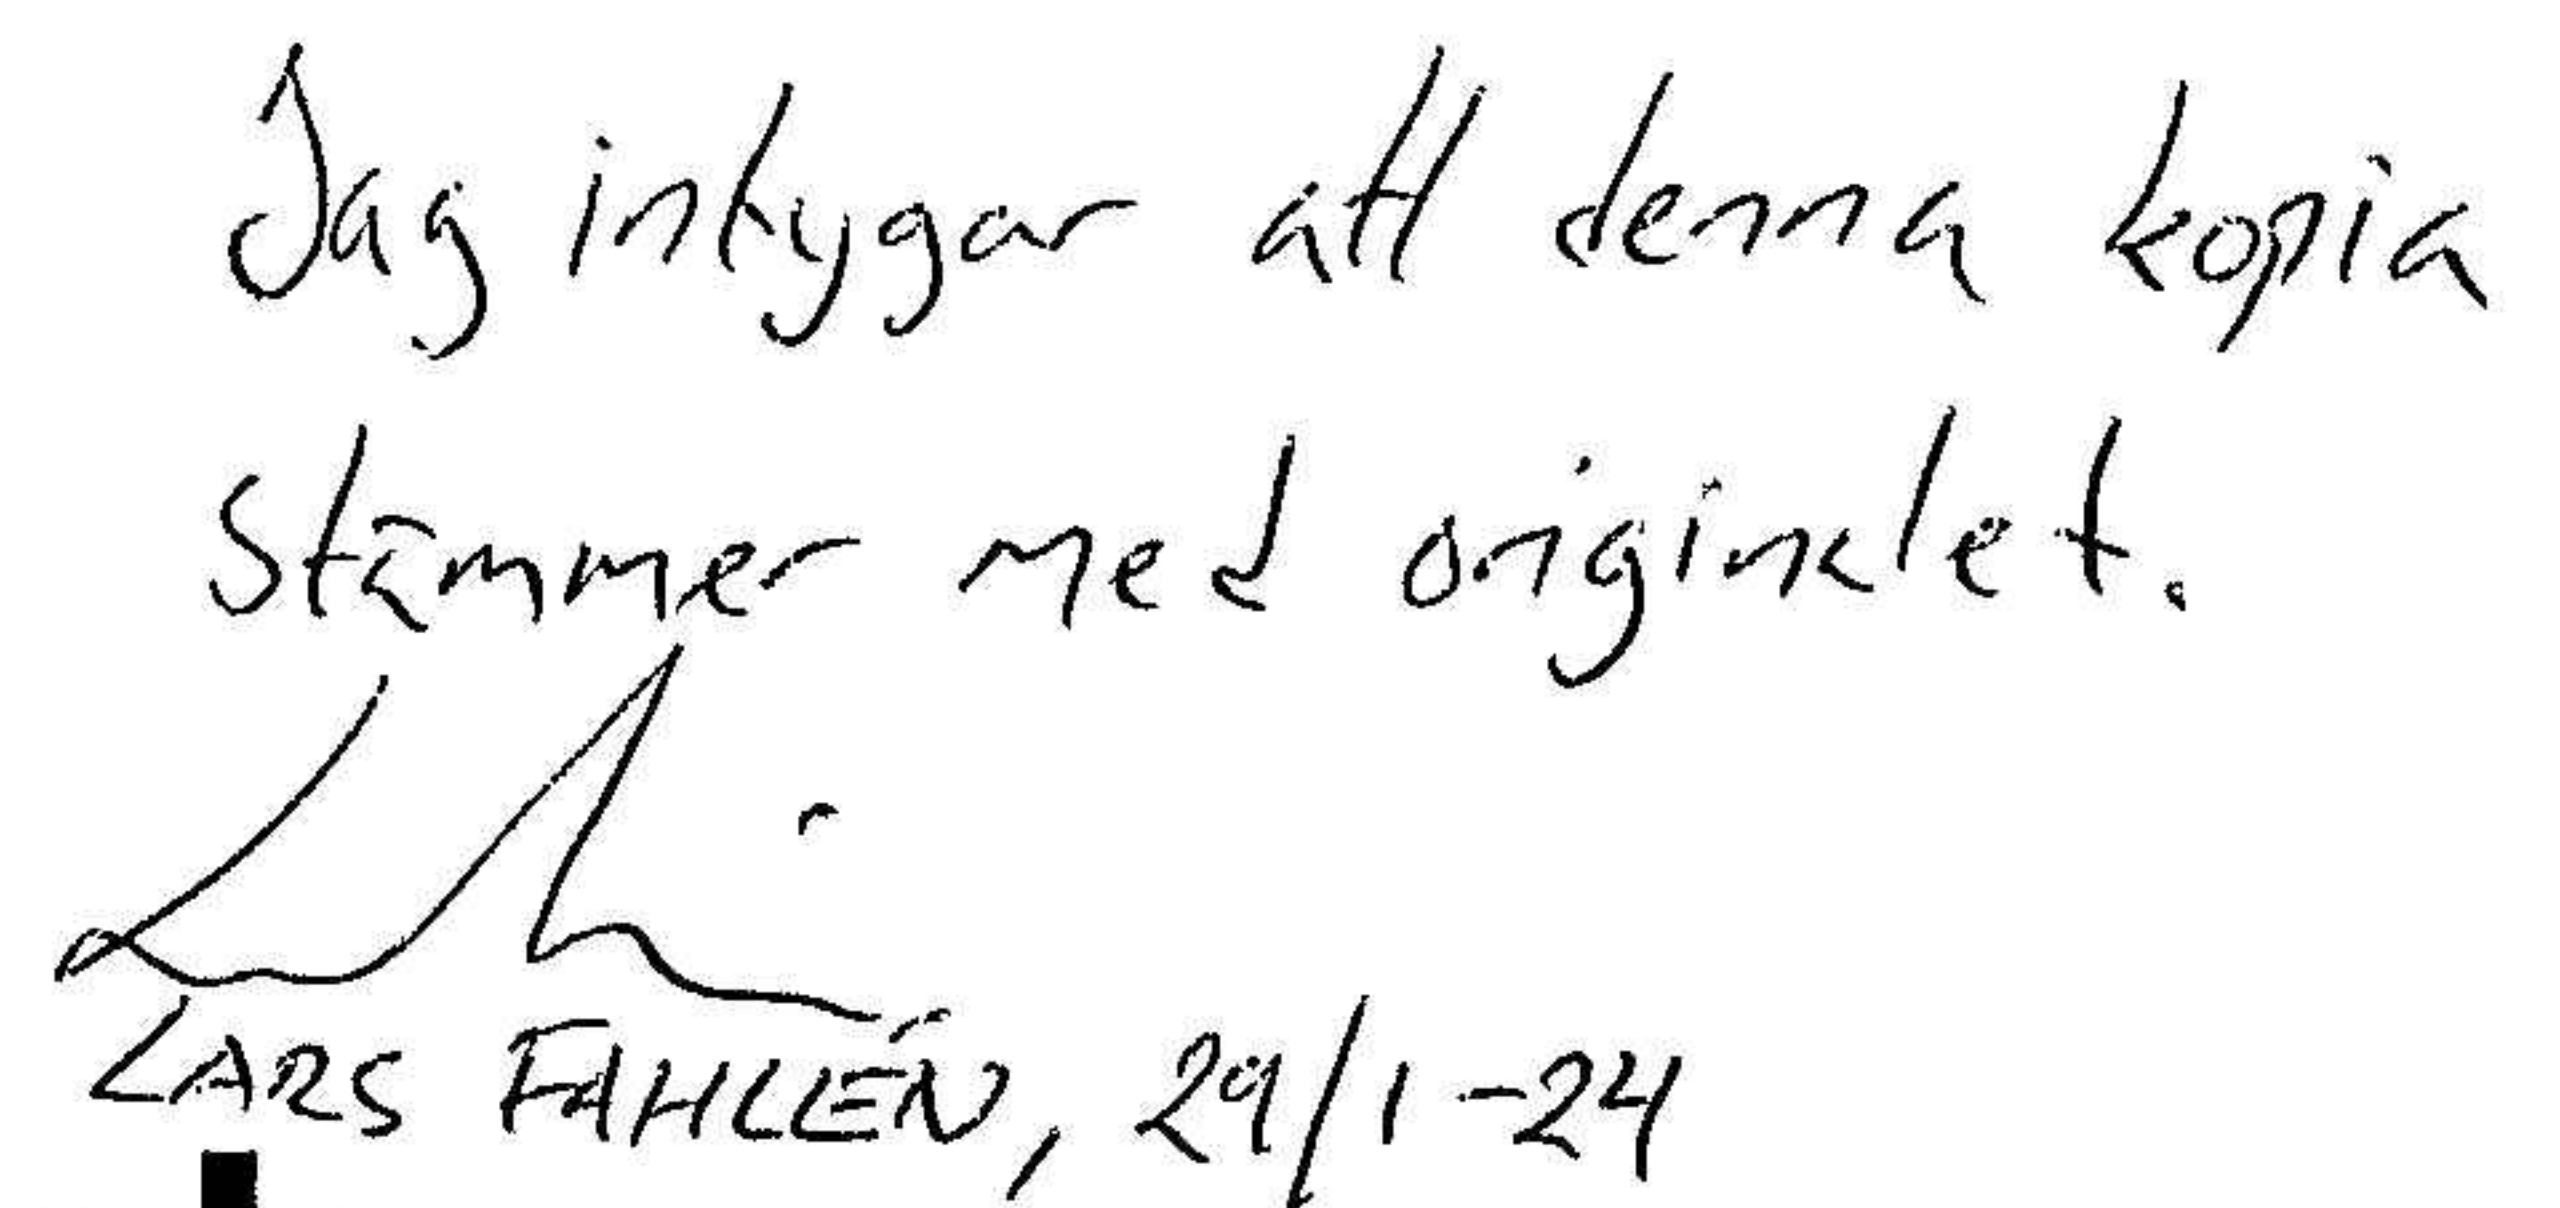 Jag intygar att denna kopia
stämmer med originalet.
LARS FAHLLÉN, 29/1-24